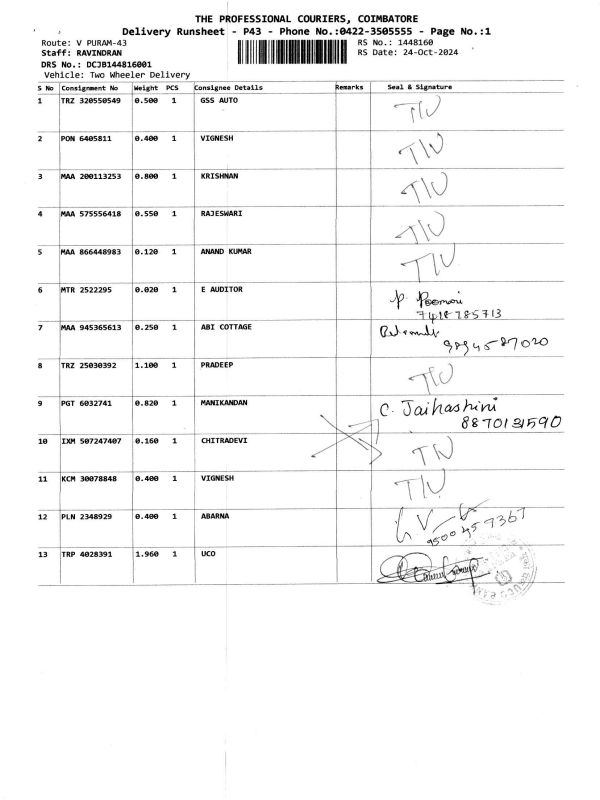 THE PROFESSIONAL COURIERS, COIMBATORE
Delivery Runsheet - P43 - Phone No.:0422-3505555 - Page No.:1
Route: V PURAM-43 RS No.: 1448160
Staff: RAVINDRAN RS Date: 24-Oct-2024
DRS No.: DCJB144816001
Vehicle: Two Wheeler Delivery
S No Consignment No Weight PCS Consignee Details Remarks Seal & Signature
1 TRZ 320550549 0.500 1 GSS AUTO T/U
2 PON 6405811 0.400 1 VIGNESH T/U
3 MAA 200113253 0.800 1 KRISHNAN T/U
4 MAA 575556418 0.550 1 RAJESWARI T/U
5 MAA 866448983 0.120 1 ANAND KUMAR T/U
6 MTR 2522295 0.020 1 E AUDITOR P.
7418785713
7 MAA 945365613 0.250 1 ABI COTTAGE
9894587020
8 TRZ 25030392 1.100 1 PRADEEP T/U
9 PGT 6032741 0.820 1 MANIKANDAN C. Jaihashini
8870131590
10 IXM 507247407 0.160 1 CHITRADEVI T/U
11 KCM 30078848 0.400 1 VIGNESH T/U
12 PLN 2348929 0.400 1 ABARNA
9500457367
13 TRP 4028391 1.960 1 UCO